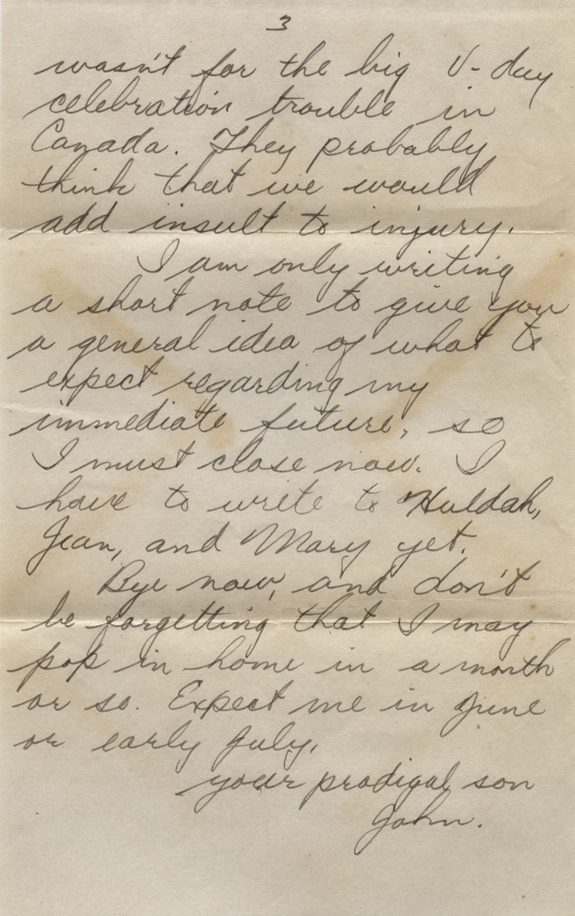 3
wasn't for the big V-day
celebration trouble in
Canada. They probably
think that we would
add insult to injury.
I am only writing
a short note to give you
a general idea of what to
expect regarding my
immediate future, so
I must close now. I
have to write to Huldah,
Jean, and Mary yet.
Bye now, and don't
be forgetting that I may
pop in home in a month
or so. Expect me in June
or early July.
your prodigal son
John.